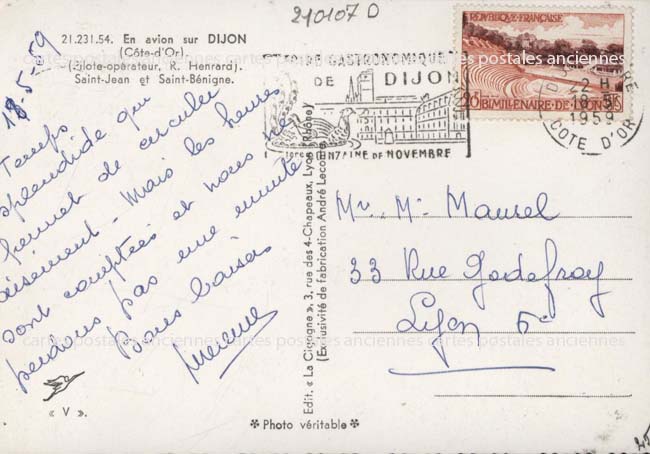 210107 D
21.231.54. En avion sur DIJON
(Côte-d'Or).
(Pilote-opérateur, R. Henrard).
Saint-Jean et Saint-Bénigne.
18-5-59
Temps
splendide qui
permet de circuler
aisément - Mais les heures
sont comptées et nous ne
perdons pas une minute
Bons baisers
Edit. « La Cigogne », 3, rue des 4-Chapeaux, Lyon (Rhône)
(Exclusivité de fabrication André Leconte)
FOIRE GASTRONOMIQUE
DE DIJON
1ère QUINZAINE DE NOVEMBRE
REPUBLIQUE FRANÇAISE
20F BIMILLENAIRE DE LYON
22 H
18-5
1959
COTE D'OR
Mr. Me. Maurel
33 Rue Godefroy
Lyon 6e
cartes postales anciennes cartes postales anciennes cartes postales anciennes
« V ».
* Photo véritable *